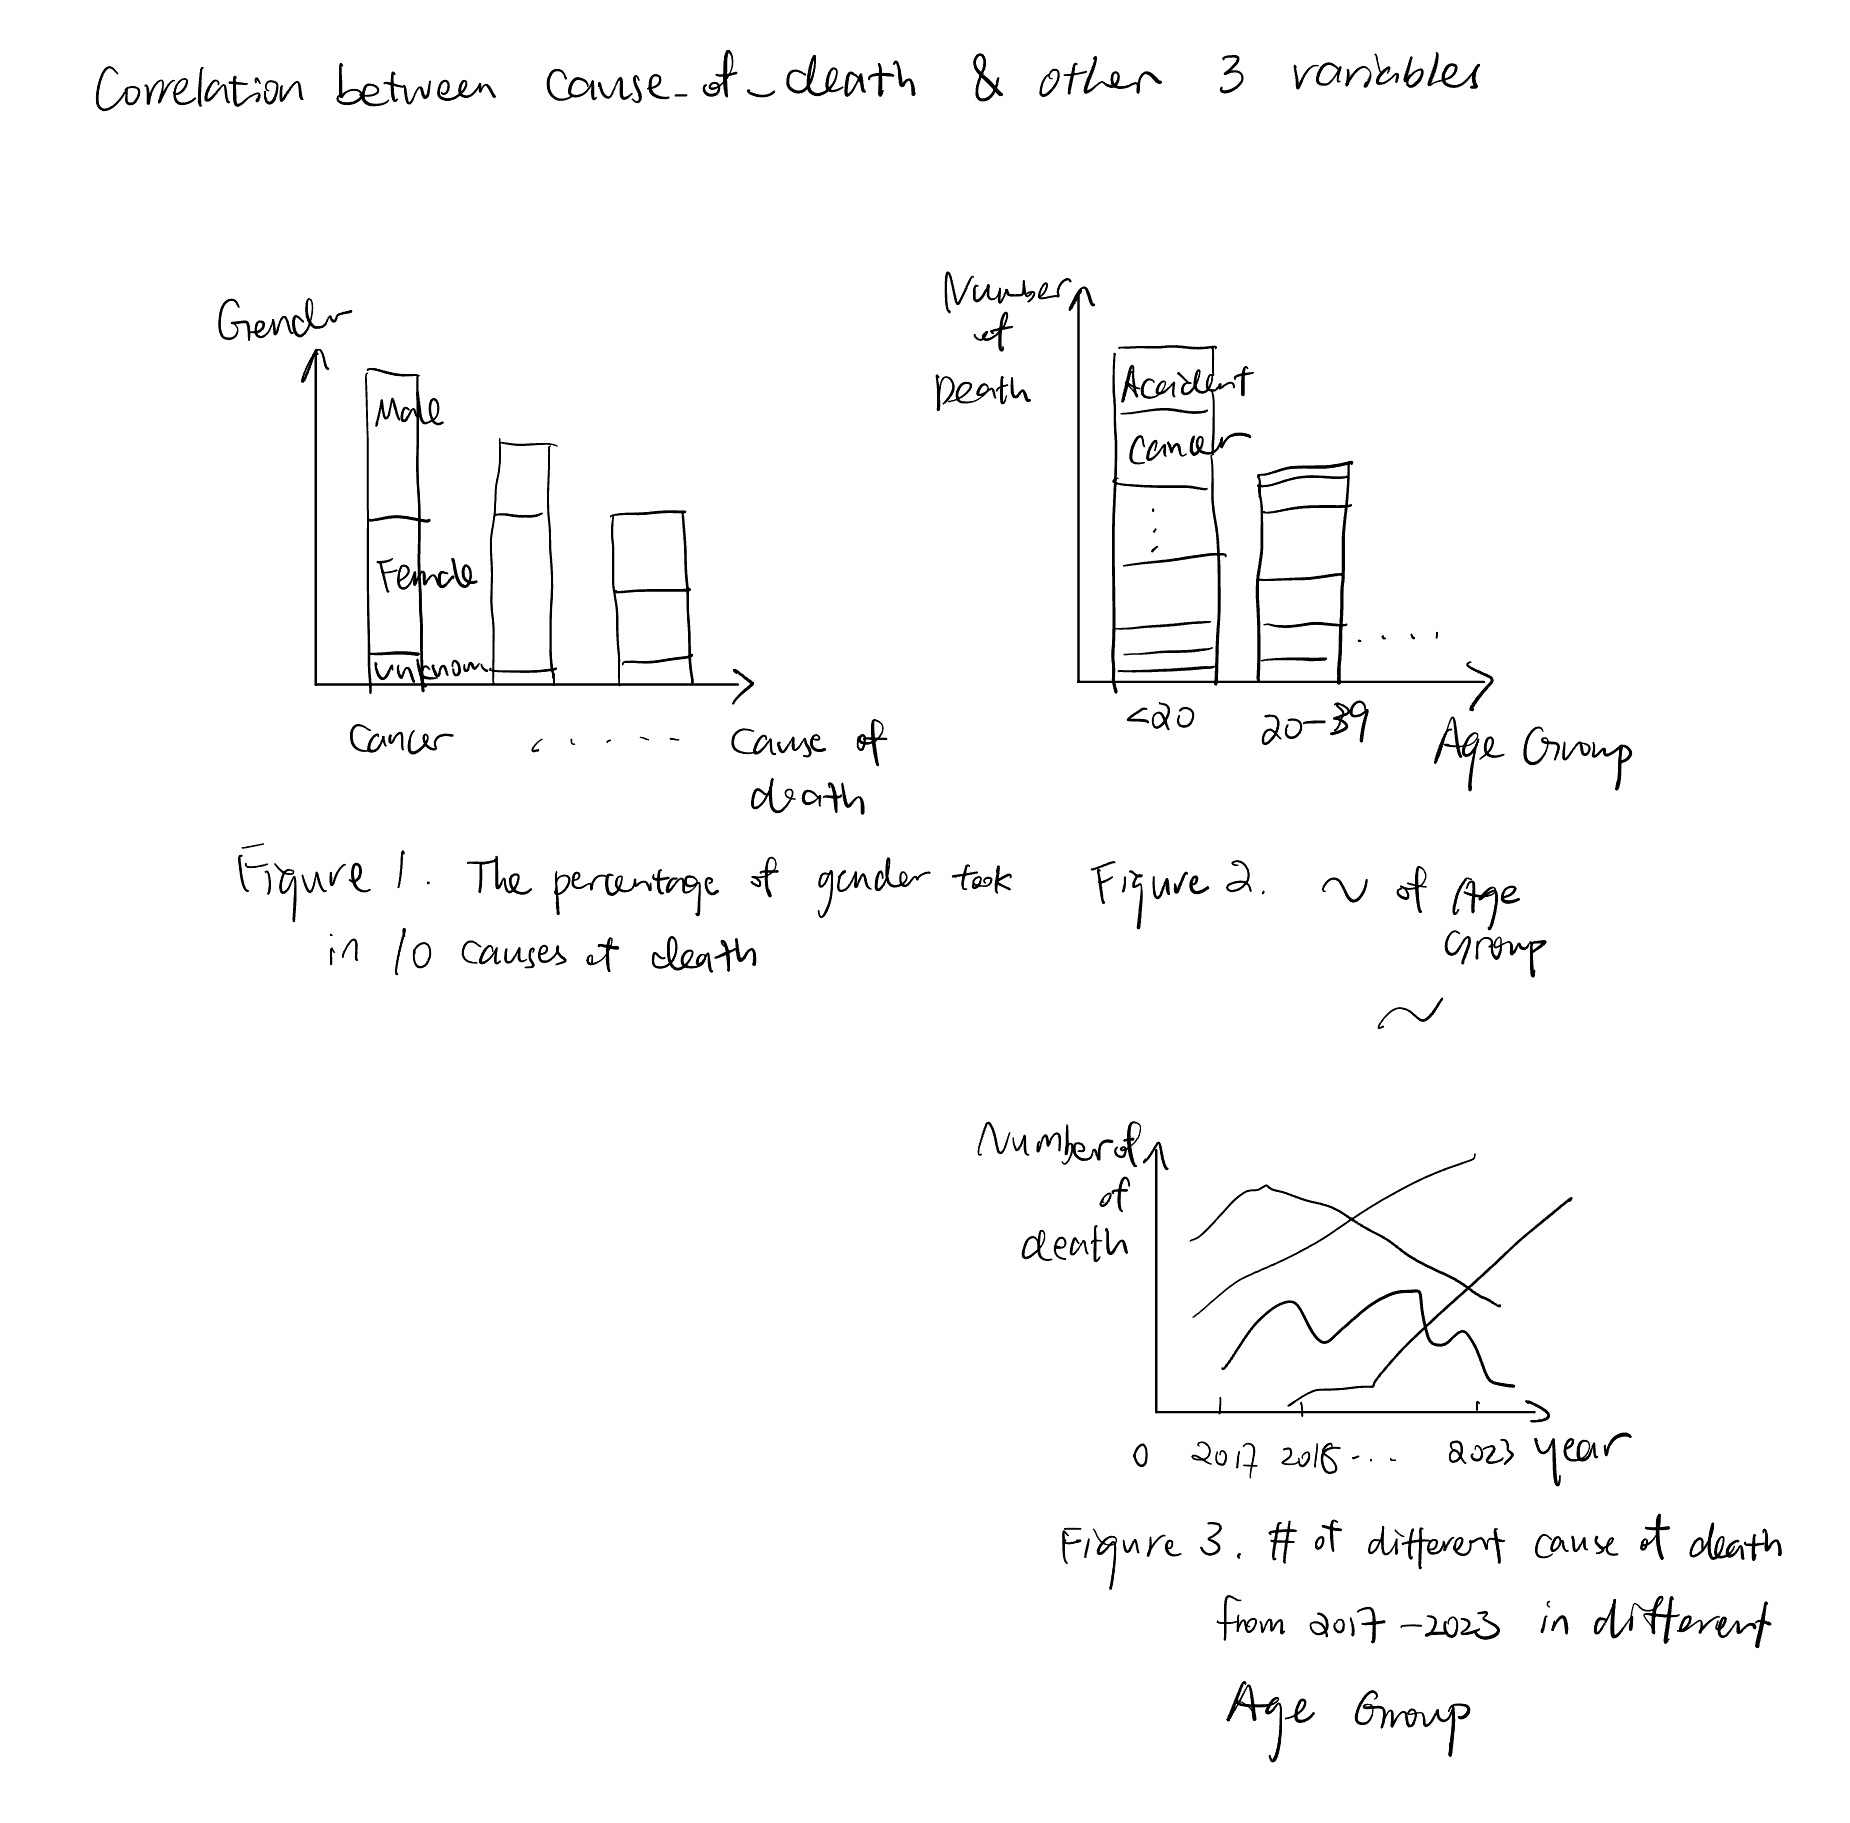 Correlation between cause_of_death & other 3 variables
Gender
Male
Female
unknown
Cancer ..... Cause of
death
Figure 1. The percentage of gender took
in 10 causes of death
Number
of
Death
Accident
Cancer
....
<20 20-39
Age Group
Figure 2. ~ of Age
Group
~
Number of
of
death
0 2017 2018 ... 2023 year
Figure 3. # of different cause of death
from 2017-2023 in different
Age Group